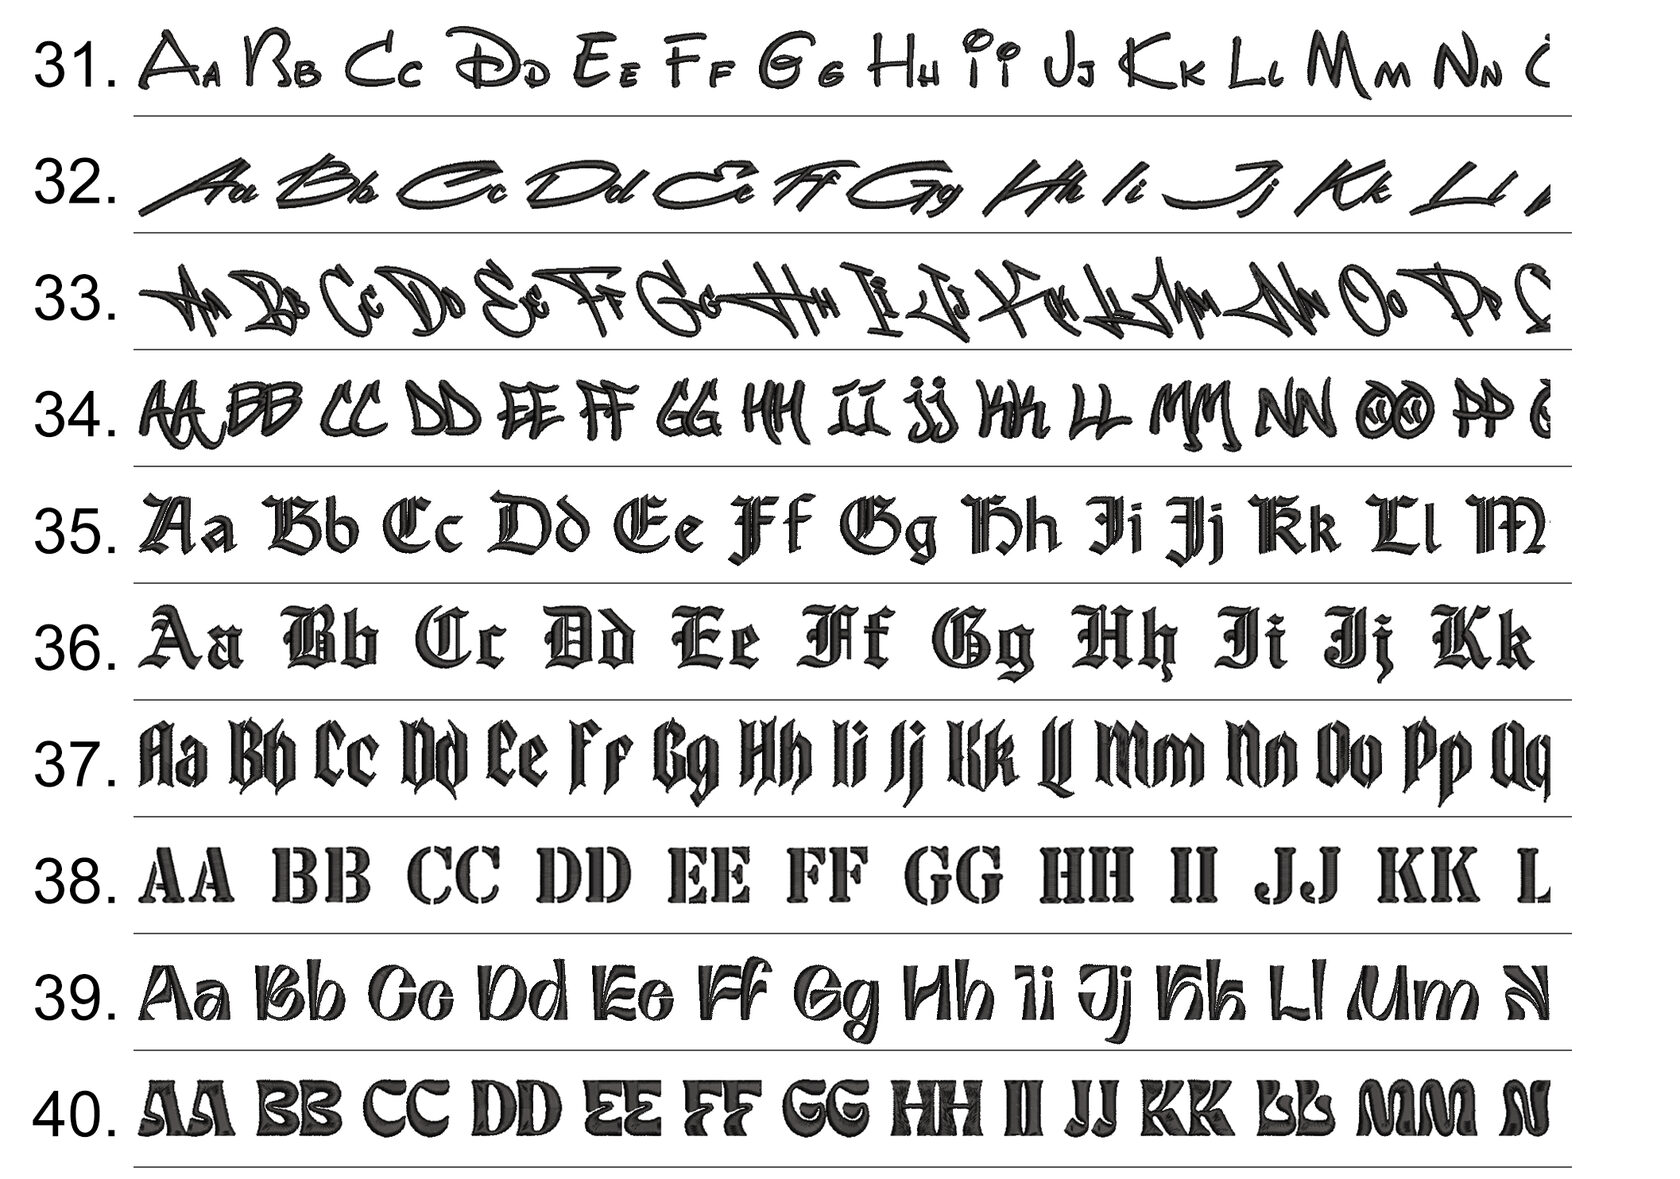 31. AA BB CC DD EE FF GG HH ii JJ KK LL MM NN
32. Aa Bb Cc Dd Ee Ff Gg Hh Ii Jj Kk Ll
33. AA BB CC DD EE FF GG HH Ii JJ KK LL MM NN OO PP
34. AA BB CC DD EE FF GG HH II jj KK LL MM NN OO PP
35. Aa Bb Cc Dd Ee Ff Gg Hh Ii Jj Kk Ll M
36. Aa Bb Cc Dd Ee Ff Gg Hh Ii Jj Kk
37. Aa Bb Cc Dd Ee Ff Gg Hh Ii Jj Kk Ll Mm Nn Oo Pp Qq
38. AA BB CC DD EE FF GG HH II JJ KK L
39. Aa Bb Cc Dd Ee Ff Gg Hh Ii Jj Kk Ll Mm N
40. AA BB CC DD EE FF GG HH II JJ KK LL MM N